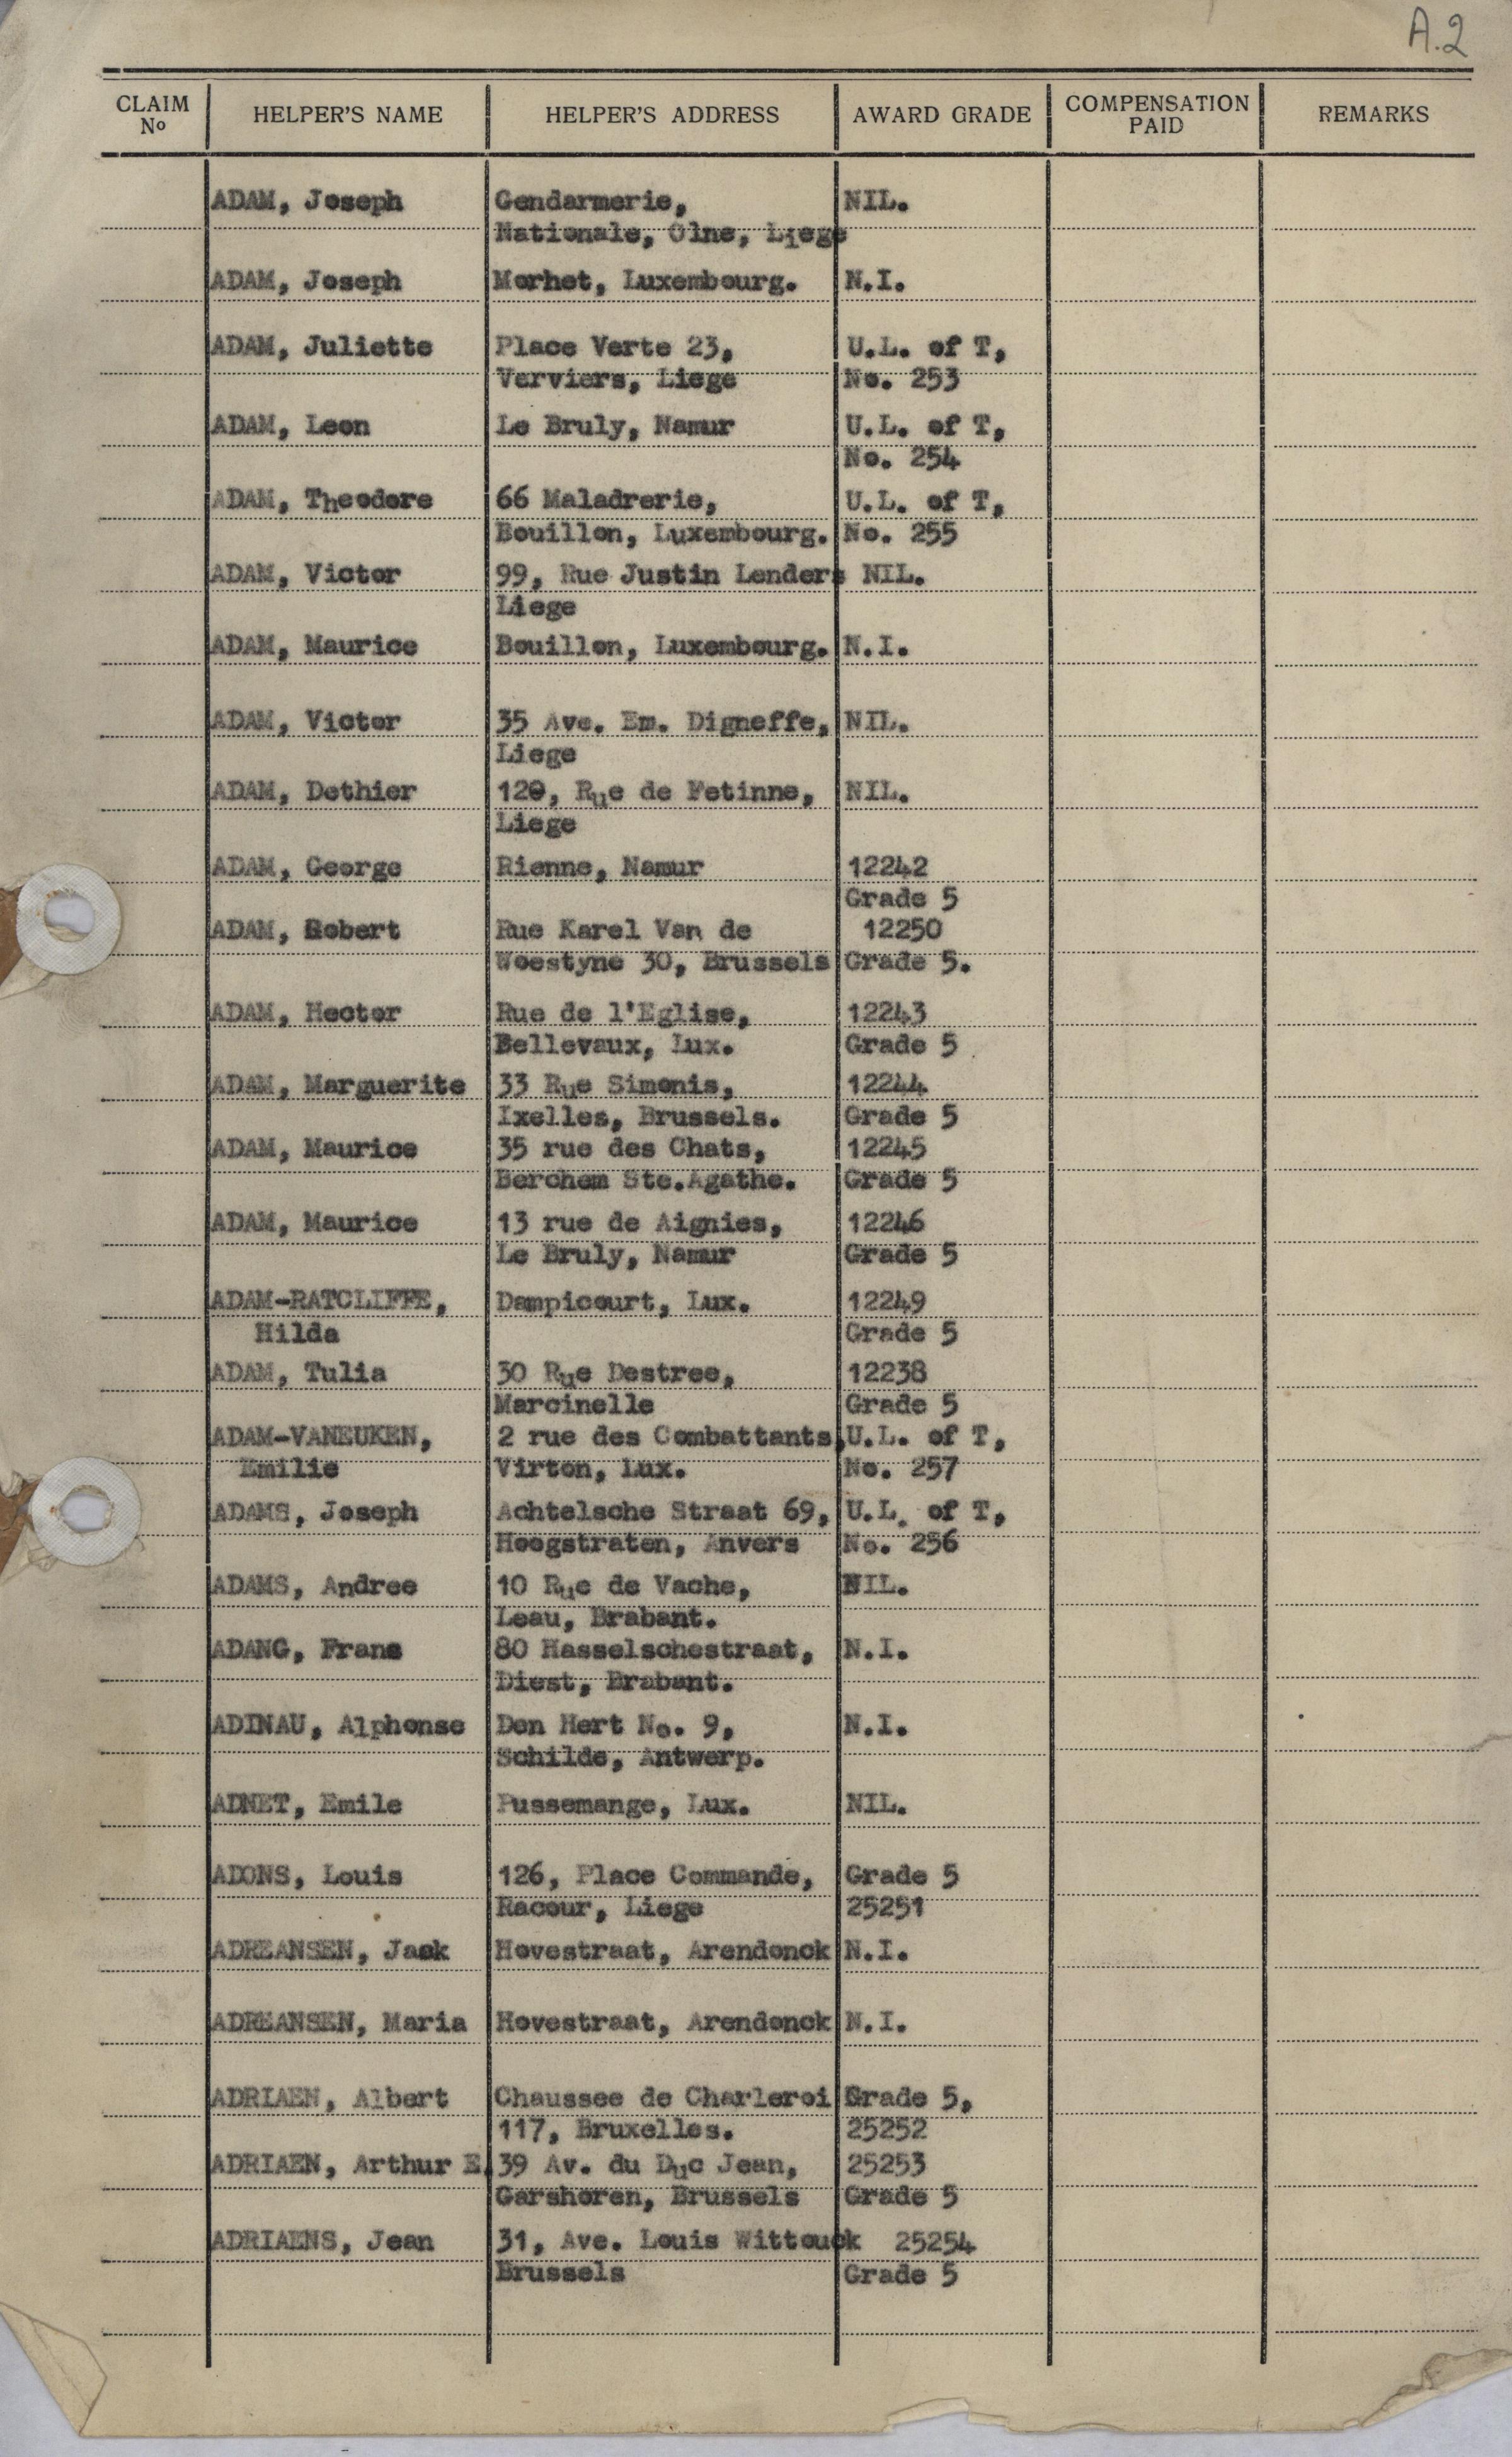 A.2
CLAIM No HELPER'S NAME HELPER'S ADDRESS AWARD GRADE COMPENSATION PAID REMARKS
ADAM, Joseph Gendarmerie, NIL.
Nationale, Olne, Liege
ADAM, Joseph Morhet, Luxembourg. N.I.
ADAM, Juliette Place Verte 23, U.L. of T,
Verviers, Liege No. 253
ADAM, Leon Le Bruly, Namur U.L. of T,
No. 254
ADAM, Theodore 66 Maladrerie, U.L. of T,
Bouillon, Luxembourg. No. 255
ADAM, Victor 99, Rue Justin Lenders NIL.
Liege
ADAM, Maurice Bouillon, Luxembourg. N.I.
ADAM, Victor 35 Ave. Em. Digneffe, NIL.
Liege
ADAM, Dethier 120, Rue de Fetinne, NIL.
Liege
ADAM, George Rienne, Namur 12242
Grade 5
ADAM, Robert Rue Karel Van de 12250
Woestyne 30, Brussels Grade 5.
ADAM, Hector Rue de l'Eglise, 12243
Bellevaux, Lux. Grade 5
ADAM, Marguerite 33 Rue Simonis, 12244
Ixelles, Brussels. Grade 5
ADAM, Maurice 35 rue des Chats, 12245
Berchem Ste.Agathe. Grade 5
ADAM, Maurice 13 rue de Aignies, 12246
Le Bruly, Namur Grade 5
ADAM-RATCLIFFE, Dampicourt, Lux. 12249
Hilda Grade 5
ADAM, Tulia 30 Rue Destree, 12238
Marcinelle Grade 5
ADAM-VANEUKEN, 2 rue des Combattants, U.L. of T,
Emilie Virton, Lux. No. 257
ADAMS, Joseph Achtelsche Straat 69, U.L. of T,
Hoogstraten, Anvers No. 256
ADAMS, Andree 10 Rue de Vache, NIL.
Leau, Brabant.
ADANG, Frans 80 Hasselschestraat, N.I.
Diest, Brabant.
ADINAU, Alphonse Den Hert No. 9, N.I.
Schilde, Antwerp.
ADNET, Emile Pussemange, Lux. NIL.
ADONS, Louis 126, Place Commande, Grade 5
Racour, Liege 25251
ADREANSEN, Jack Hovestraat, Arendonck N.I.
ADREANSEN, Maria Hovestraat, Arendonck N.I.
ADRIAEN, Albert Chaussee de Charleroi Grade 5,
117, Bruxelles. 25252
ADRIAEN, Arthur E. 39 Av. du Duc Jean, 25253
Garshoren, Brussels Grade 5
ADRIAENS, Jean 31, Ave. Louis Wittouck 25254
Brussels Grade 5